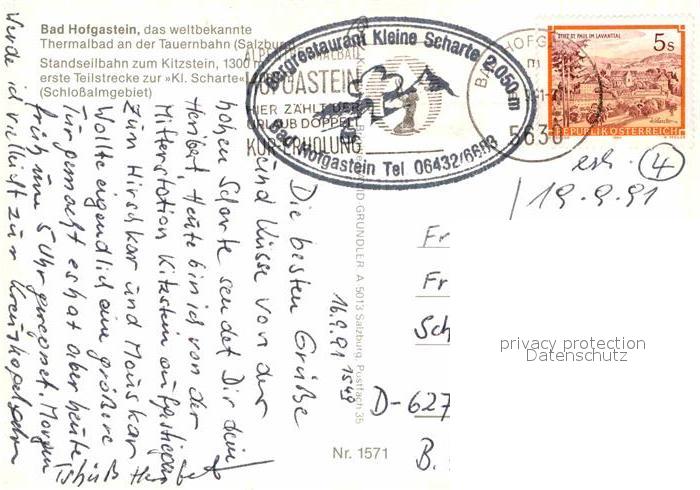 Bad Hofgastein, das weltbekannte
Thermalbad an der Tauernbahn (Salzburg
Standseilbahn zum Kitzstein, 1300 m
erste Teilstrecke zur »Kl. Scharte«
(Schloßalmgebiet)
Bergrestaurant Kleine Scharte 2.050-m
Bad Hofgastein Tel 06432/6683
HOFGASTEIN
HIER ZÄHLT DER
URLAUB DOPPELT
KUR+ERHOLUNG
BAD HOFGA
5630
STIFT ST. PAUL IM LAVANTTAL
5 S
REPUBLIK ÖSTERREICH
4
19.9.91
Die besten Grüße
und Küsse von der
hohen Scharte sendet Dir dein
Heribert, Heute bin ich von der
Mittelstation Kitzstein aufgestiegen
zum Hirschkar und Mauskar
Wollte eigendlich eine größere
Tur gemacht es hat aber heute
früh um 5 Uhr geregnet. Morgen
Werde ich vielleicht zur Kreuzkogel
Tschüß
16.9.91 1549
GRÜNDLER A 5013 Salzburg, Postfach 35
Nr. 1571
Fr
Fr
Sch
D-627
B.
privacy protection
Datenschutz